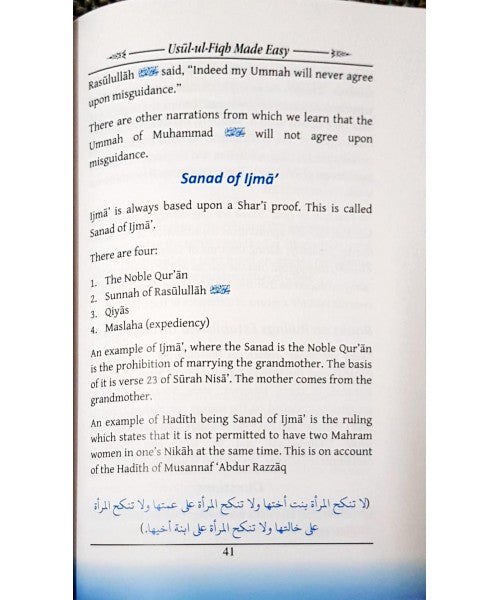 Usūl-ul-Fiqh Made Easy
Rasūlullāh ﷺ said, “Indeed my Ummah will never agree
upon misguidance.”
There are other narrations from which we learn that the
Ummah of Muhammad ﷺ will not agree upon
misguidance.
Sanad of Ijmā’
Ijmā’ is always based upon a Shar’ī proof. This is called
Sanad of Ijmā’.
There are four:
1. The Noble Qur’ān
2. Sunnah of Rasūlullāh ﷺ
3. Qiyās
4. Maslaha (expediency)
An example of Ijmā’, where the Sanad is the Noble Qur’ān
is the prohibition of marrying the grandmother. The basis
of it is verse 23 of Sūrah Nisā’. The mother comes from the
grandmother.
An example of Hadīth being Sanad of Ijmā’ is the ruling
which states that it is not permitted to have two Mahram
women in one’s Nikāh at the same time. This is on account
of the Hadīth of Musannaf ‘Abdur Razzāq
(لا تنكح المرأة بنت أختها ولا تنكح المرأة على عمتها ولا تنكح المرأة
على خالتها ولا تنكح المرأة على ابنة أخيها.)
41